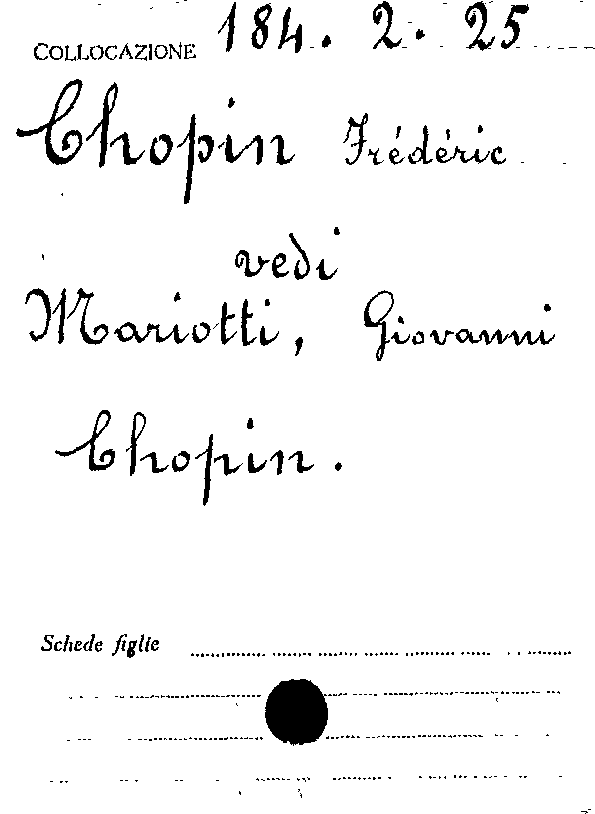 COLLOCAZIONE 184. 2. 25
Chopin Frédéric
vedi
Mariotti, Giovanni
Chopin.
Schede figlie